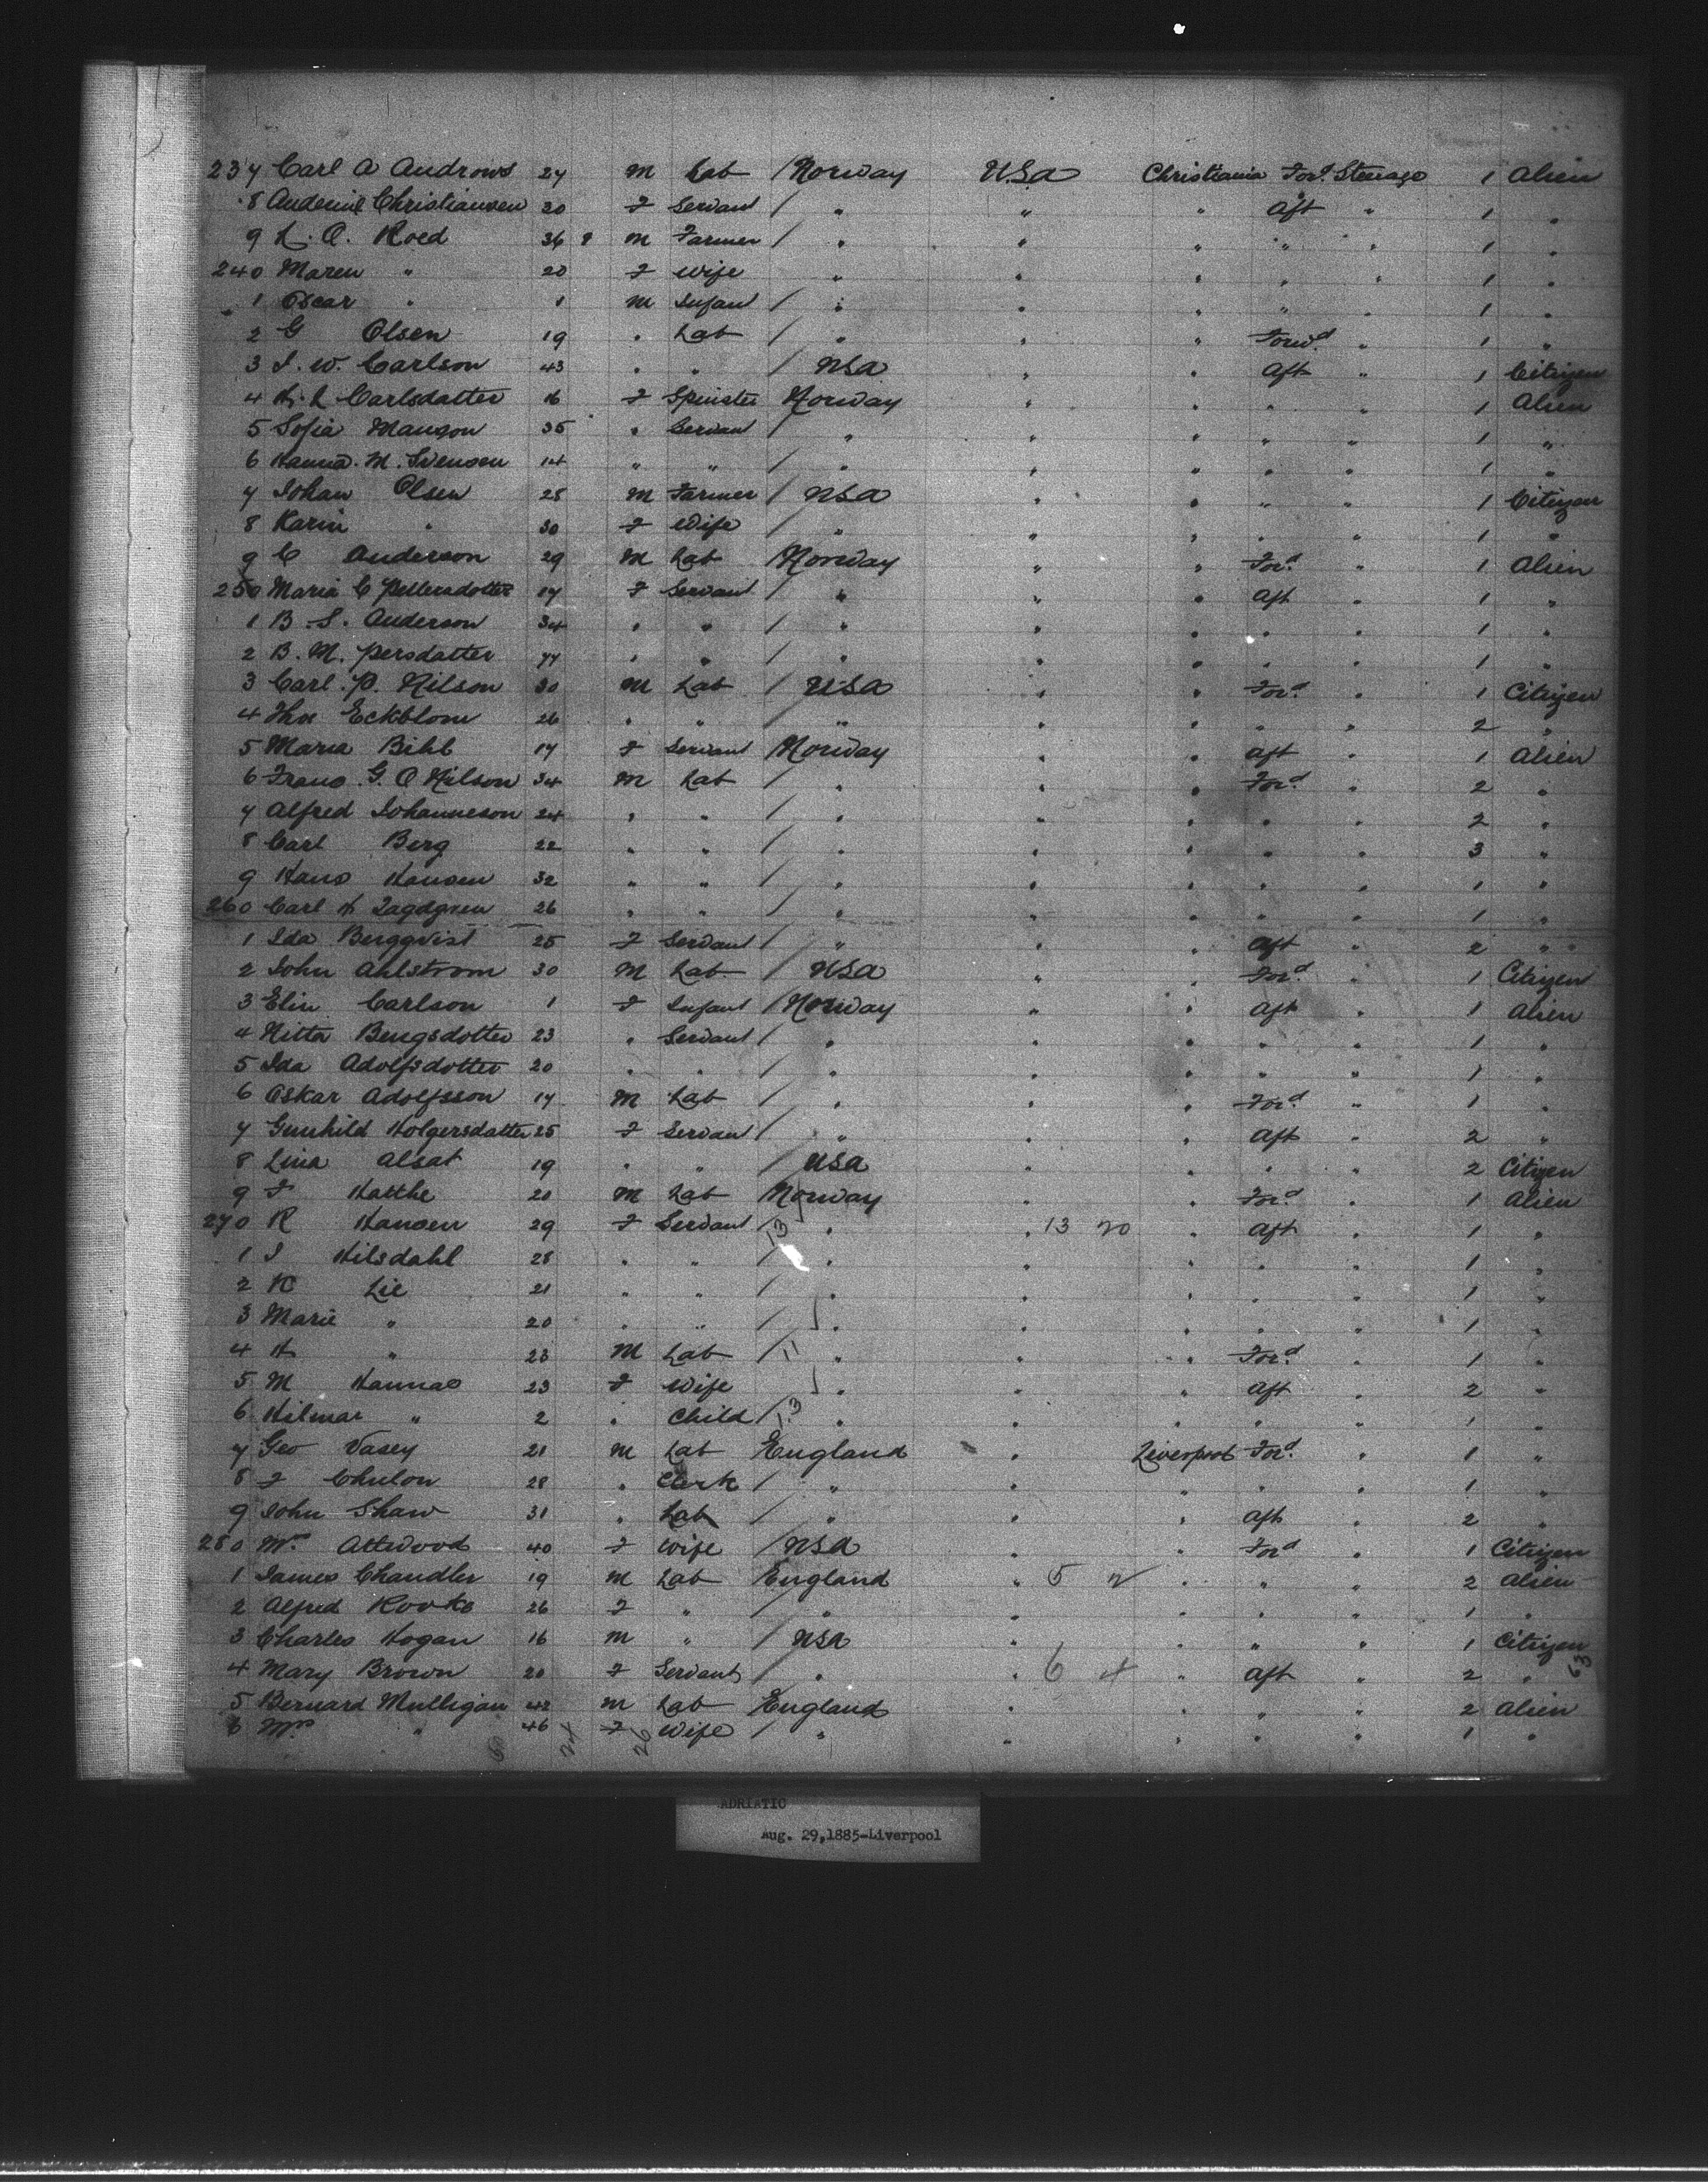 237 Carl A Androws 27 M Lab / Norway U.S.A Christiania For.d Steerage 1 Alien
8 Christiansen 20 F Servant / " " " Aft " 1 "
9 L. O. Roed 36 M Farmer / " " " " " 1 "
240 Maren " 20 F Wife " " " " " 1 "
1 Oscar " 1 M Infant / " " " " " 1 "
2 G Olsen 19 " Lab / " " " Forwd " 1 "
3 I. W. Carlson 43 " " / USA " " Aft " 1 Citizen
4 K. L Carlsdatter 16 F Spinster Norway " " " " 1 Alien
5 Sofia Manson 35 " Servant / " " " " " 1 "
6 Hanna. M. Svensen 14 " " / " " " " " 1 "
7 Johan Olsen 28 M Farmer / USA " " " " 1 Citizen
8 Karin " 30 F Wife / " " " " " 1 "
9 C Anderson 29 M Lab Norway " " For.d " 1 Alien
250 Maria C Pettersdotter 17 F Servant / " " " Aft " 1 "
1 B. S. Anderson 34 " " / " " " " " 1 "
2 B. M. Persdatter 77 " " / " " " " " 1 "
3 Carl. P. Nilson 30 M Lab / USA " " For.d " 1 Citizen
4 Eckblom 26 " " / " " " " " 2 "
5 Maria Bihl 17 F Servant Norway " " Aft " 1 Alien
6 Frans. G. O Nilson 34 M Lab / " " " For.d " 2 "
7 Alfred Johanneson 24 " " / " " " " " 2 "
8 Carl Berg 22 " " / " " " " " 3 "
9 Hans Hansen 32 " " / " " " " " 1 "
260 Carl H 26 " " / " " " " " 1 "
1 Ida Bergqvist 25 F Servant / " " " Aft " 2 "
2 John Ahlstrom 30 M Lab / USA " " For.d " 1 Citizen
3 Elin Carlson 1 F Infant / Norway " " Aft " 1 Alien
4 Bengsdotter 23 " Servant / " " " " " 1 "
5 Ida Adolfsdotter 20 " " / " " " " " 1 "
6 Oskar Adolfsson 17 M Lab / " " " For.d " 1 "
7 Gunhild Holgersdatter 25 F Servant / " " " Aft " 2 "
8 Lina Alsat 19 " " / USA " " " " 2 Citizen
9 F Hatthe 20 M Lab Norway " " For.d " 1 Alien
270 R Hansen 29 F Servant / 13 " " 13 20 " Aft " 1 "
1 I Hilsdahl 28 " " / " " " " " 1 "
2 K Lie 21 " " / " " " " " 1 "
3 Marie " 20 " " / " " " " " 1 "
4 H " 23 M Lab / 11 " " " For.d " 1 "
5 M Hannao 23 F Wife " " " Aft " 2 "
6 Hilmar " 2 " Child / 13 " " " " " 1 "
7 Geo Vasey 21 M Lab England " Liverpool For.d " 1 "
8 F Chulon 28 " Clerk / " " " " " 1 "
9 John Shaw 31 " Lab / " " " Aft " 2 "
280 Mrs Attwood 40 F Wife / USA " " For.d " 1 Citizen
1 James Chandler 19 M Lab England " 5 2 " " " 2 Alien
2 Alfred Rooke 26 F " / " " " " " 1 "
3 Charles Hogan 16 M " / USA " " " " 1 Citizen
4 Mary Brown 20 F Servant / " " 6 4 " Aft " 2 " 63
5 Bernard Mulligan 42 M Lab England " " " " 2 Alien
6 Mrs " 46 F Wife / " " " " " 1 "
6 24 26
ADRIATIC
Aug. 29,1885-Liverpool